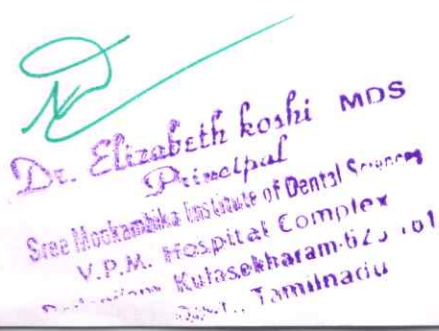 Dr. Elizabeth koshi MDS
Principal
Sree Mookambika Institute of Dental Sciences
V.P.M. Hospital Complex
Kulasekharam
Tamilnadu